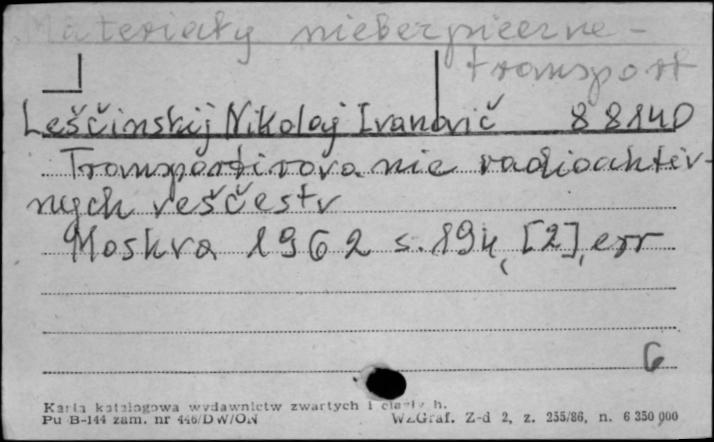 Materiały niebezpieczne -
transport
Leščinskij Nikolaj Ivanovič 88140
Transportirovanie radioaktiv-
nych veščestv
Moskva 1962 s. 194, [2], err
6
Karta katalogowa wydawnictw zwartych i ciągłych.
Pu B-144 zam. nr 446/DW/ON WZGraf. Z-d 2, z. 255/86, n. 6 350 000